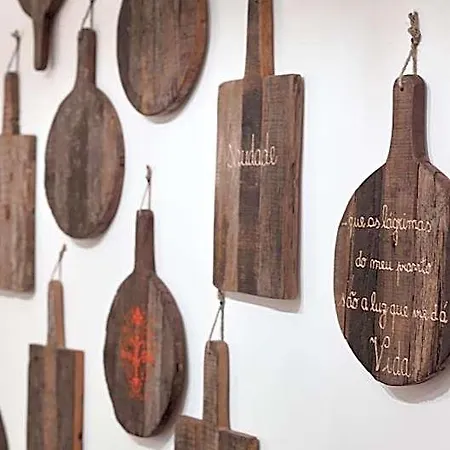 Saudade
...que as lágrimas
do meu pranto
são a luz que me dá
Vida